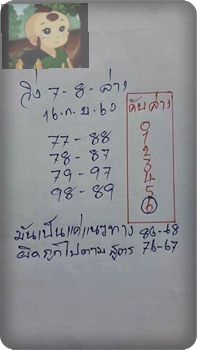 วิ่ง 7-8-ล่าง
16.ก.ย.60
77-88
78-87
79-97
98-89
ดับล่าง
0
1
2
3
4
5
6
มันเป็นแค่แนวทาง 86-68
ผิดถูกไปตามสูตร 76-67